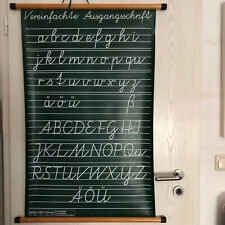 Vereinfachte Ausgangsschrift
abcdefghi
jklmnopqu
rstuvwxyz
äöü ß
ABCDEFGHI
JKLMNOPQU
RSTUVWXYZ
ÄÖÜ